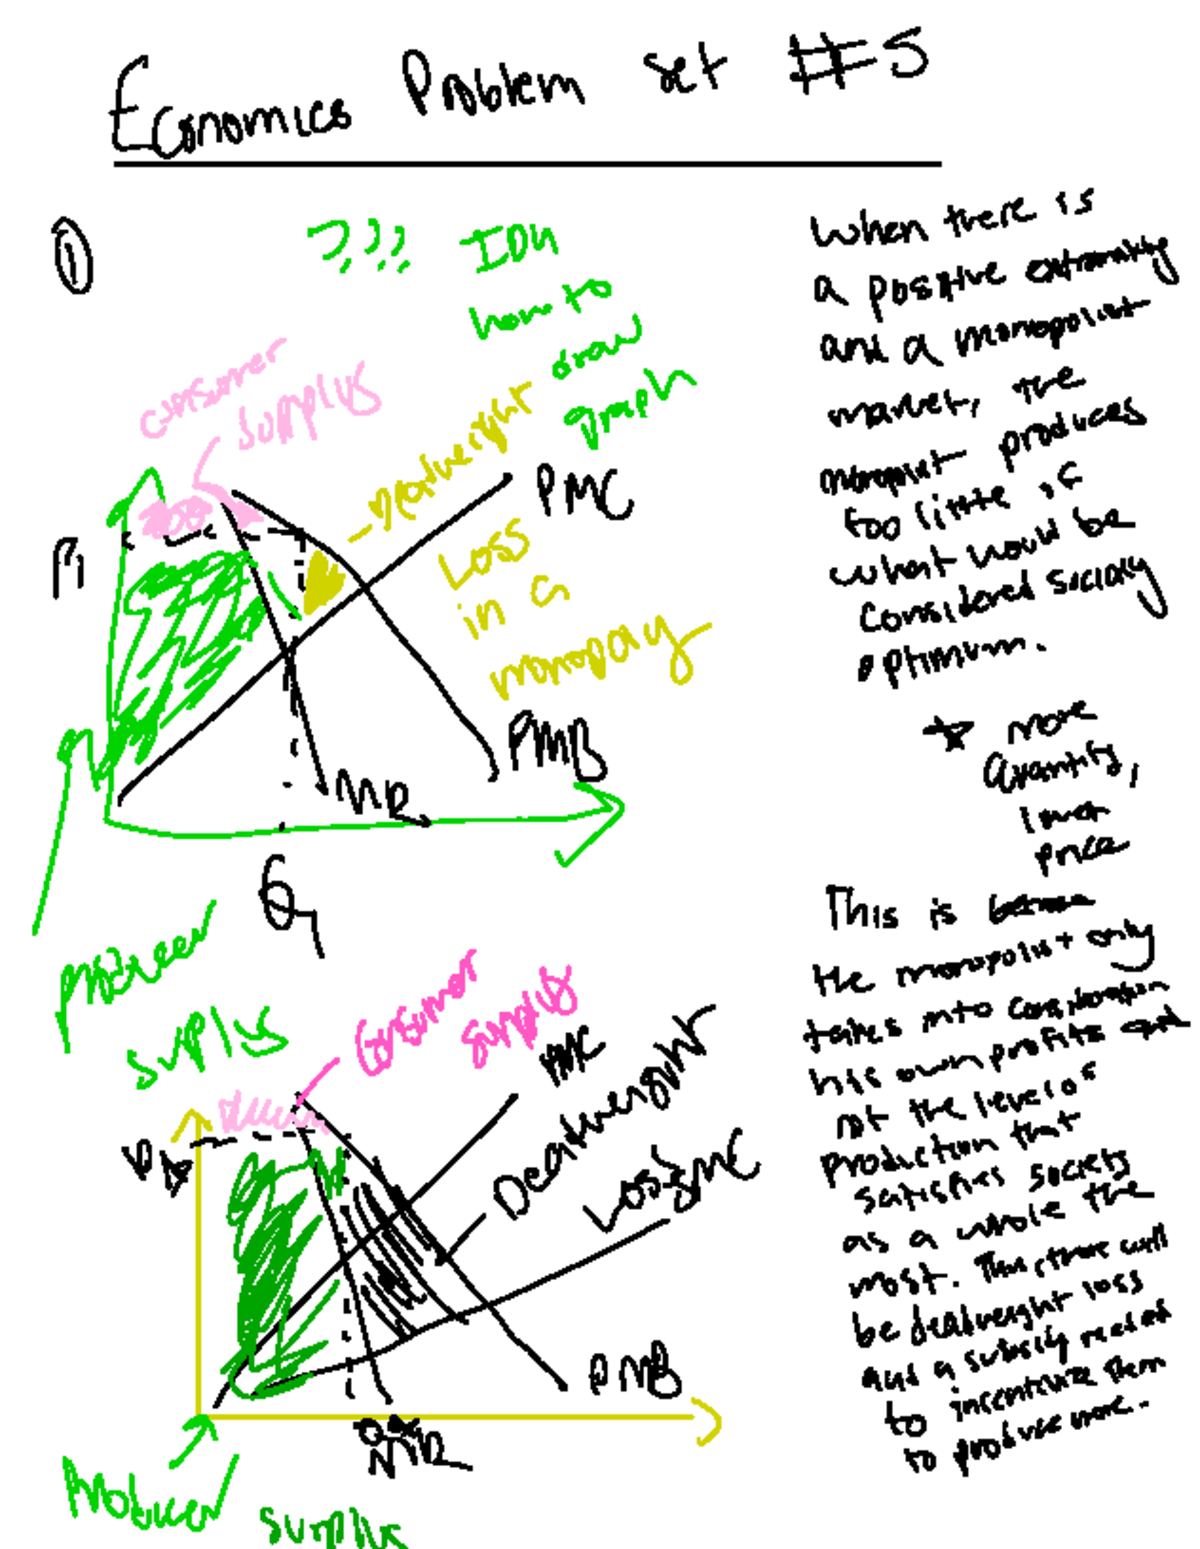 Economics Problem set #5
①
??? IDK
how to
draw
graph
consumer
surplus
Deadweight
Loss
in a
monopoly
PMC
P1
PMB
MR
Q1
producer
surplus
When there is
a positive externality
and a monopolist
market, the
monopolist produces
too little of
what would be
considered socially
optimum.
☆ more
Quantity,
lower
price
This is because
the monopolist only
takes into consideration
his own profits and
not the level of
production that
satisfies society
as a whole the
most. Thus, there will
be deadweight loss
and a subsidy needed
to incentivize them
to produce more.
Consumer
surplus
PMC
Deadweight
Loss
SMC
PMB
MR
Producer
surplus